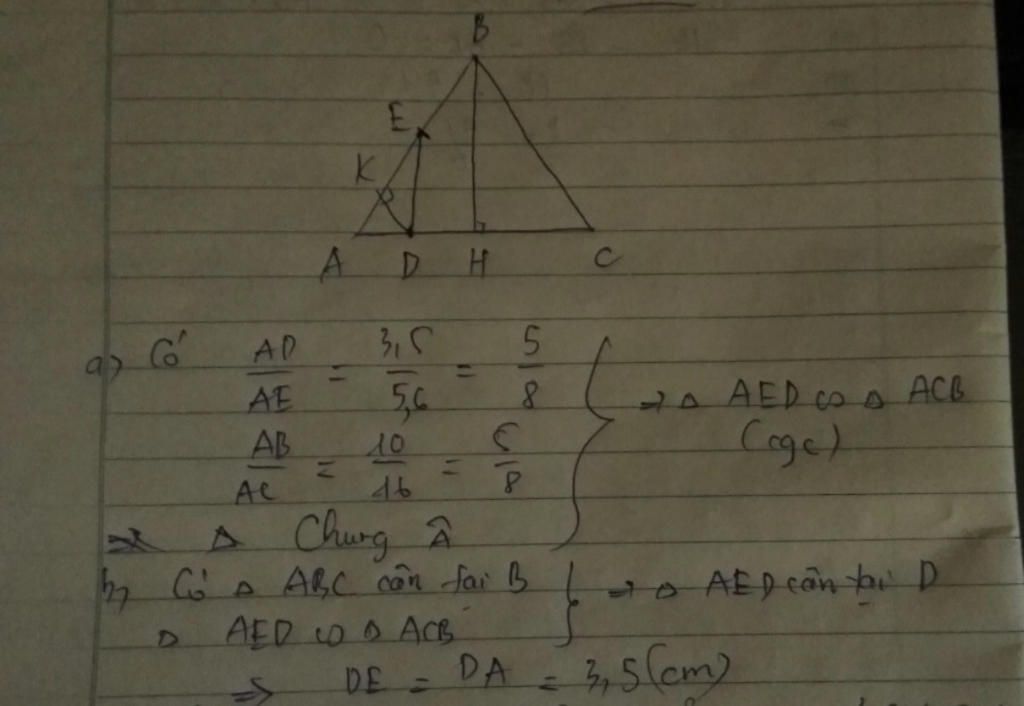 B
E
K
A D H C
a) Có AD/AE = 3,5/5,6 = 5/8
AB/AC = 10/16 = 5/8
Δ Chung Â
} => Δ AED ∽ Δ ACB
(cgc)
b, Có Δ ABC cân tại B } => Δ AED cân tại D
Δ AED ∽ Δ ACB
=> DE = DA = 3,5(cm)